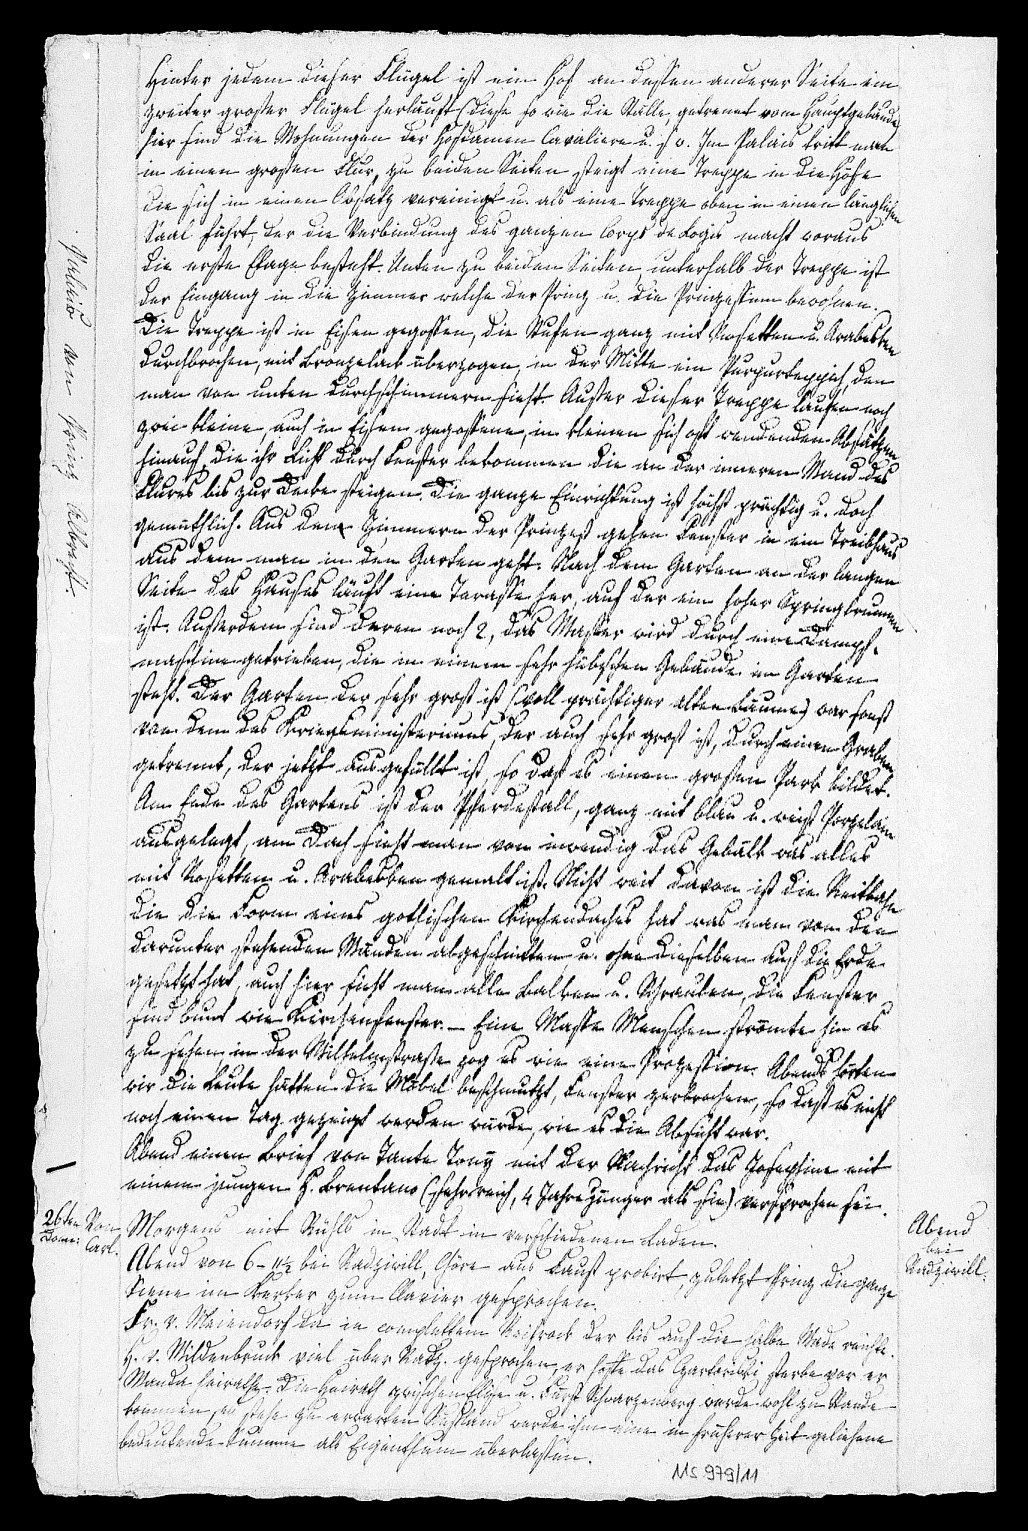 Hinter jedem dieser Flügel ist ein Hof an dessen anderer Seite ein
zweiter großer Flügel herläuft (diese so wie die Ställe, getrennt vom Hauptgebäude
hier sind die Wohnungen der Hofdamen Cavaliere u. s. w. Im Palais tritt man
in einen großen Flur, zu beiden Seiten steigt eine Treppe in die Höhe
die sich in einen Absatz vereinigt u. als eine Treppe oben in einen länglichen
Saal führt, der die Verbindung des ganzen Corps de Logis macht woraus
die erste Etage besteht. Unten zu beiden Seiten unterhalb der Treppe ist
der Eingang in die Zimmer welche der Prinz u. die Prinzessinn bewohnen.
Die Treppe ist in Eisen gegossen, die Stufen ganz mit Rosetten u. Arabesken
durchbrochen, mit Bronzelack überzogen, in der Mitte ein Purpurteppich, den
man von unten durchschimmern sieht. Außer dieser Treppe laufen noch
zwei kleine, auch in Eisen gegossene, in kleinen sich oft wendenden Absätzen
hinauf, die ihr Licht durch Fenster bekommen die an der inneren Wand des
Flures bis zur Decke steigen. Die ganze Einrichtung ist höchst prächtig u. doch
gemüthlich. Aus den Zimmern der Prinzeß gehen Fenster in ein Treibhaus
aus dem man in den Garten geht. Nach dem Garten an der langen
Seite des Hauses läuft eine Terasse her, auf der ein hoher Springbrunnen
ist. Außerdem sind deren noch 2, das Wasser wird durch eine Dampf-
maschine getrieben, die in einem sehr hübschen Gebäude im Garten
steht. Der Garten der sehr groß ist (voll prächtiger alten Bäume) war sonst
von dem des Kriegsministeriums, der auch sehr groß ist, durch einen Graben
getrennt, der jetzt ausgefüllt ist, so daß es einen großen Park bildet.
Am Ende des Gartens ist der Pferdestall, ganz mit blau u. weiß Porzelan
ausgelegt, am Dach sieht man von inwendig das Gebälk was alles
mit Rosetten u. Arabesken gemalt ist. Nicht weit davon ist die Reitbahn
die die Form eines gothischen Kirchendaches hat was man von den
darunter stehenden Wänden abgeschnitten u. ohne dieselben auf die Erde
gesetzt hat, auch hier sieht man alle Balken u. Schrauben, die Fenster
sind bunt wie Kirchenfenster. – Eine Masse Menschen strömte hin es
zu sehen in der Wilhelmstraße zog es wie eine Prozession. Abends hörten
wir die Leute hätten die Möbel beschmutzt, Fenster zerbrochen, so daß es nicht
noch einen Tag gezeigt werden würde, wie es die Absicht war.
Abend einen Brief von Tante Tony mit der Nachricht das Josephine mit
einem jungen H. Brentano (sehr reich, 4 Jahre jünger als sie) versprochen sei.
Palais von Prinz Albrecht.
26ten Donn: Von Carl.
Morgens mit Rühls in Stadt in verschiedenen Laden.
Abend von 6 – 11½ bei Radziwill, Chöre aus Faust probirt, zuletzt Prinz die ganze
Scene im Kerker zum Clavier gesprochen.
Fr. v. Meiendorf da in complettem Reifrock der bis auf die halbe Wade reichte.
H. v. Wildenbruch viel über Radz. gesprochen, er hoffe das Czartoriski sterbe vor er
Wanda heirathe. Die Heirath zwischen Elise u. Fürst Schwarzenberg werde wohl zu Stande
kommen, es stehe zu erwarten Rußland werde ihm eine in früherer Zeit geliehene
bedeutende Summe als Eigenthum überlassen.
Abend
bei
Radziwill.
Ms 979/11